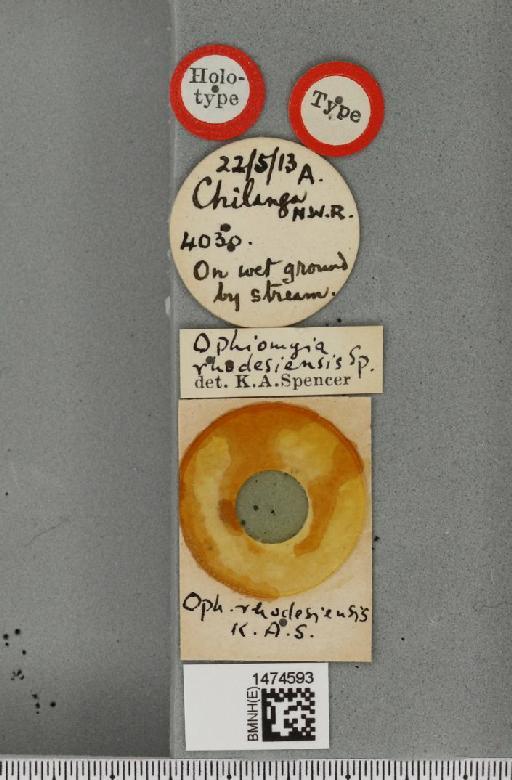 Holo-
type
Type
22/5/13 A.
Chilanga
N.W.R.
4030.
On wet ground
by stream.
Ophiomyia
rhodesiensis Sp.
det. K.A.Spencer
Oph. rhodesiensis
K.A.S.
1474593
BMNH(E)